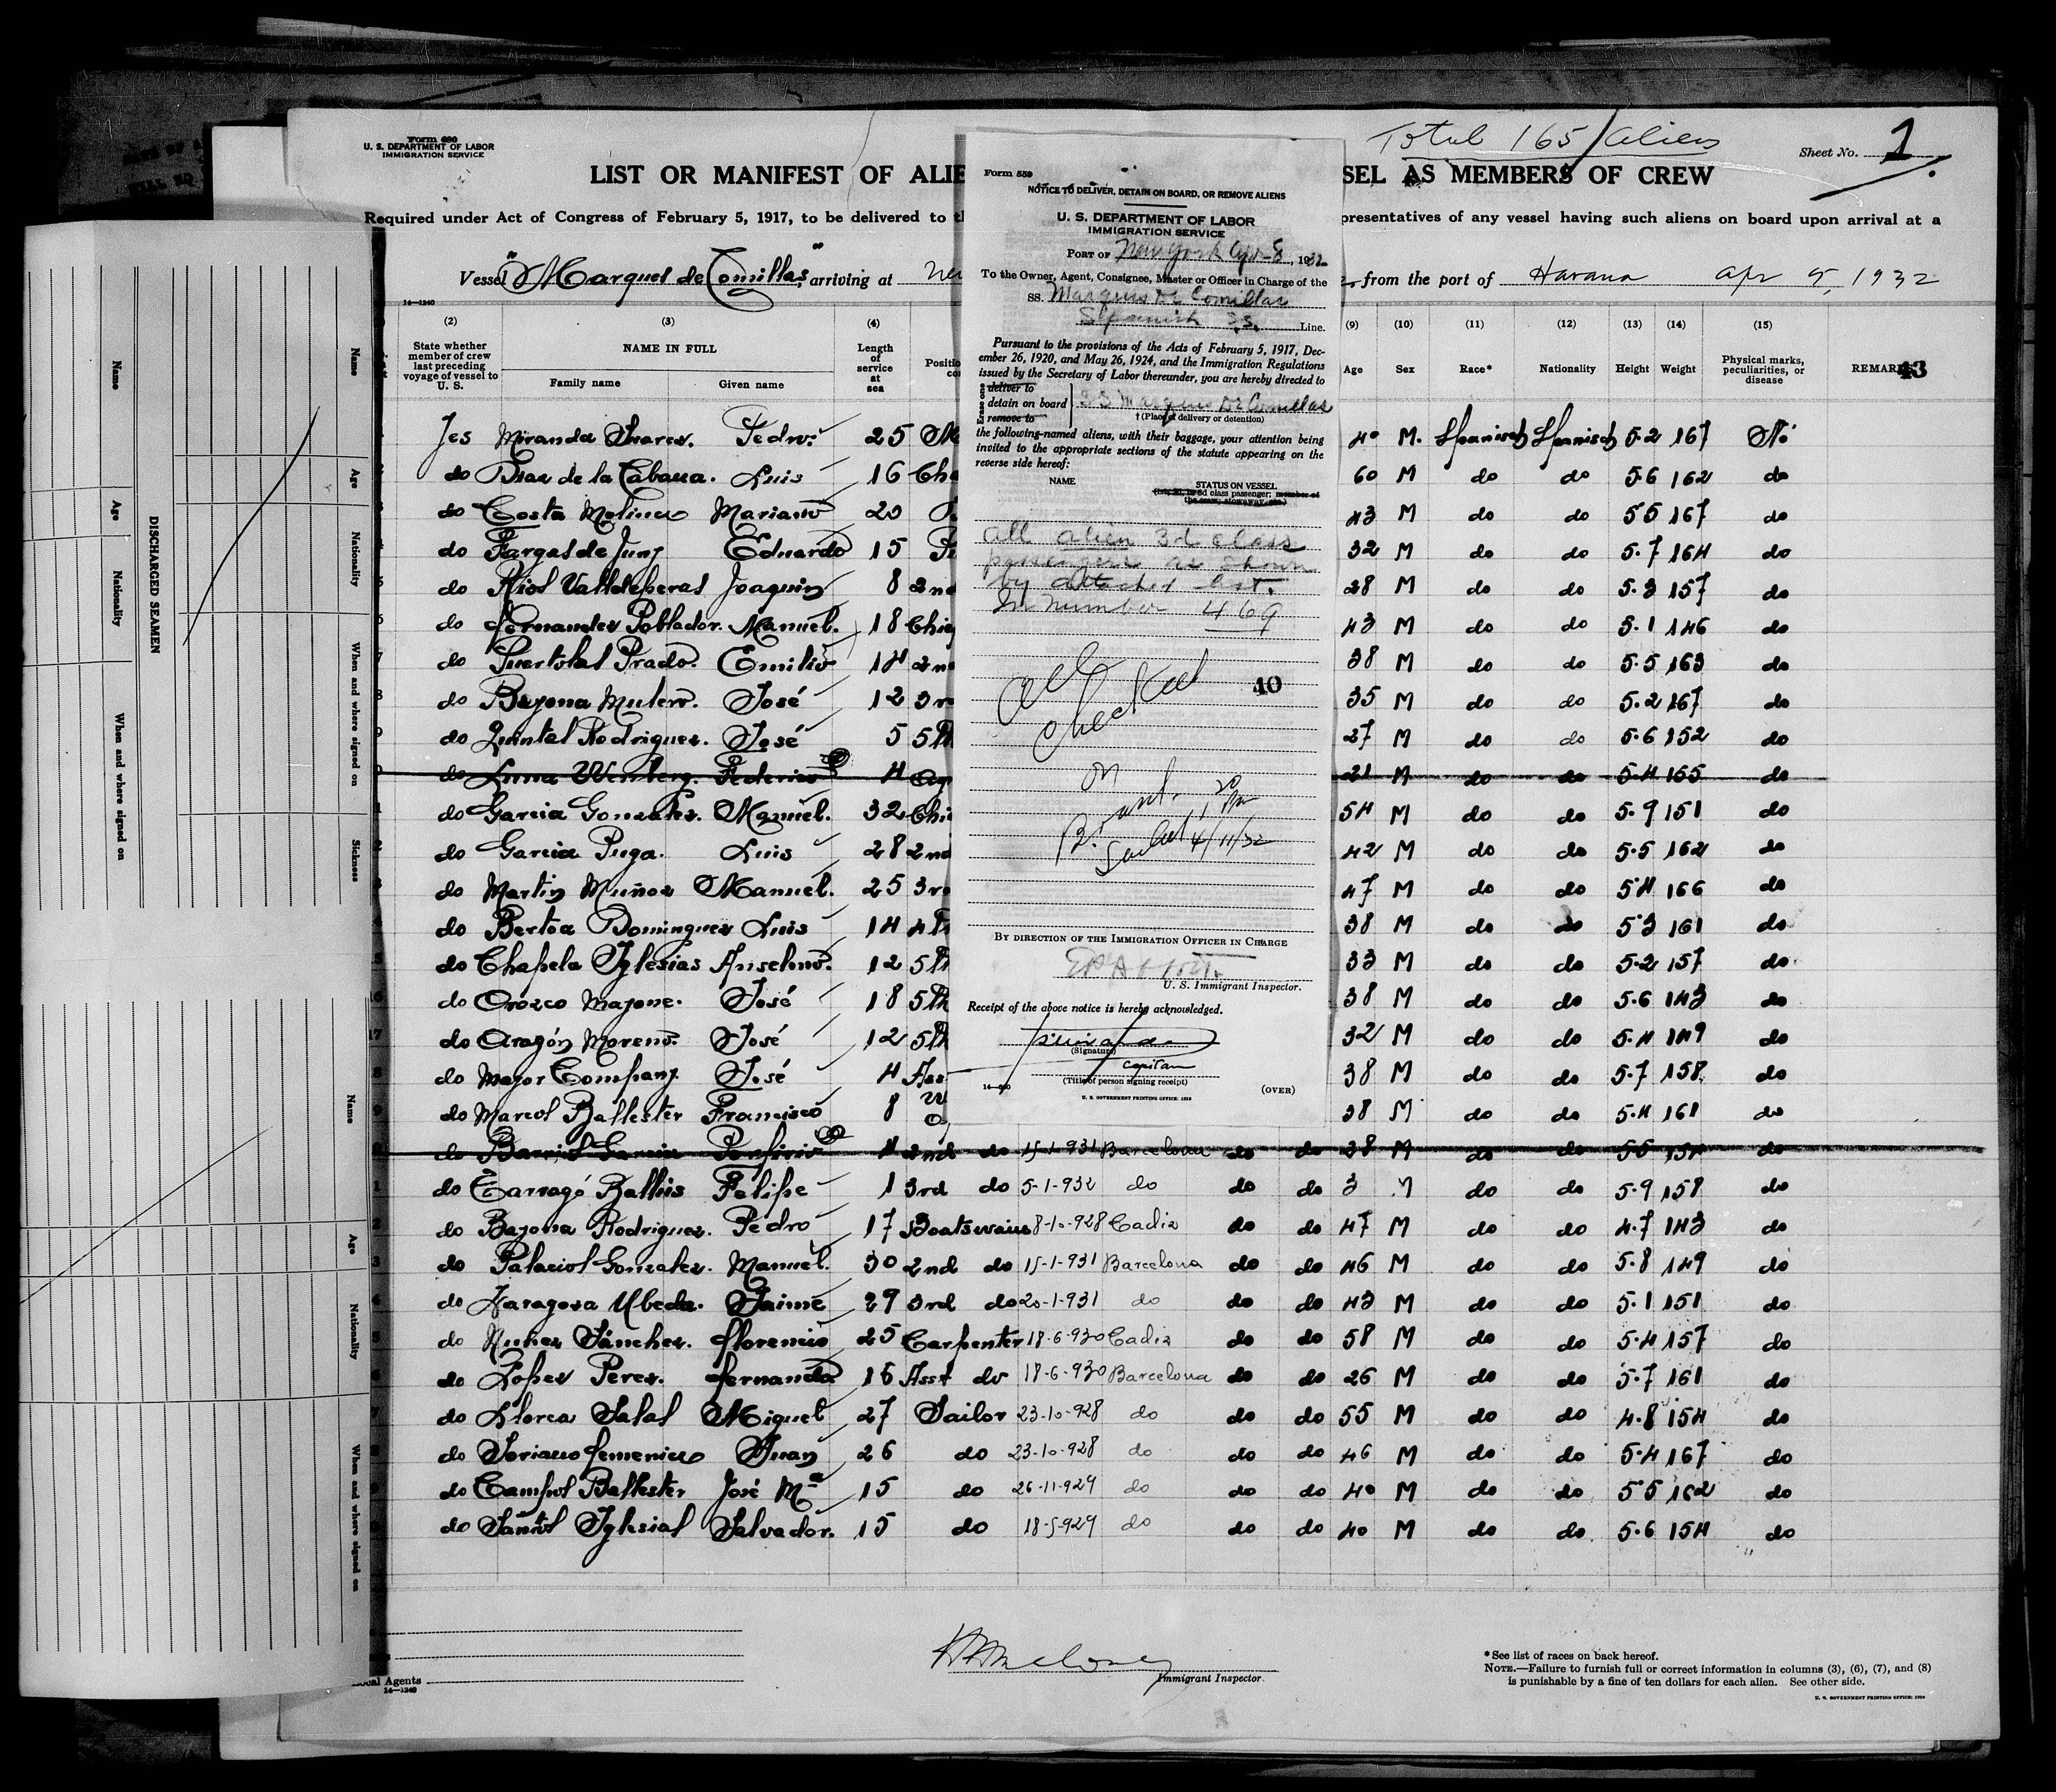 Form 680
U. S. DEPARTMENT OF LABOR
IMMIGRATION SERVICE
Total 165 Aliens
Sheet No. 1
LIST OR MANIFEST OF ALIE
SEL AS MEMBERS OF CREW
Required under Act of Congress of February 5, 1917, to be delivered to th
presentatives of any vessel having such aliens on board upon arrival at a
Vessel "Marques de Comillas" arriving at New
from the port of Havana Apr 5, 1932
14—1240
(2) (3) (4) (9) (10) (11) (12) (13) (14) (15)
State whether member of crew last preceding voyage of vessel to U. S.
NAME IN FULL
Family name Given name
Length of service at sea
Positio
co
Age Sex Race* Nationality Height Weight
Physical marks, peculiarities, or disease
REMARKS
43
Yes Miranda Suarez. Pedro. 25 40 M. Spanisch Spanisch 5.2 167 No
do Diaz de la Cabarra. Luis 16 60 M do do 5.6 162 do
do Costa Molinero Mariano 20 43 M do do 5.5 167 do
do Fargas de Juny Eduardo 15 32 M do do 5.7 164 do
do Rios Valldeperas Joaquin 8 2nd 28 M do do 5.3 157 do
do Fernandez Poblador. Manuel. 18 Chie 43 M do do 5.1 146 do
do Puertolas Prado. Emilio 14 2n 38 M do do 5.5 163 do
do Bayona Mulero. José 12 3r 35 M do do 5.2 167 do
do Quintal Rodriguez. José 5 5th 27 M do do 5.6 152 do
do Luna Wemberg. Federico 4 Ag 21 M do do 5.4 165 do
do Garcia Gonzalez. Manuel. 32 Chi 54 M do do 5.9 151 do
do Garcia Puga. Luis 28 2nd 42 M do do 5.5 162 do
do Martin Muñoz Manuel. 25 3r 47 M do do 5.4 166 do
do Bertoa Dominguez Luis 14 4th 38 M do do 5.3 161 do
do Chapela Iglesias Anselmo. 12 5th 33 M do do 5.2 157 do
do Orozco Mayone. José 18 5th 38 M do do 5.6 143 do
do Aragón Moreno. José 12 5th 32 M do do 5.4 149 do
do Mayor Company. José 4 Ass 38 M do do 5.7 158 do
do Marcol Ballester Francisco 8 38 M do do 5.4 161 do
do Barriol Garcia Porfirio 4 2nd do 15-1-931 Barcelona do do 38 M do do 5.5 154 do
do Tarragó Ballús Felipe 1 3rd do 5-1-932 do do do 3 M do do 5.9 158 do
do Bayona Rodriguez. Pedro 17 Boatswain 8-10-928 Cadiz do do 47 M do do 4.7 143 do
do Palaciol Gonzalez. Manuel. 30 2nd do 15-1-931 Barcelona do do 46 M do do 5.8 149 do
do Zaragoza Ubeda. Jaime 29 3rd do 20-1-931 do do do 43 M do do 5.1 151 do
do Nuñez Sánchez. Florencio 25 Carpenter 18-6-930 Cadiz do do 58 M do do 5.4 157 do
do Lopez Perez. Fernando 16 Asst do 18-6-930 Barcelona do do 26 M do do 5.7 161 do
do Llorca Salal Miguel 27 Sailor 23-10-928 do do do 55 M do do 4.8 154 do
do Soriano Femenias Juan 26 do 23-10-928 do do do 46 M do do 5.4 167 do
do Campol Ballester José Mª 15 do 26-11-929 do do do 40 M do do 5.5 162 do
do Santol Iglesial Salvador. 15 do 18-5-929 do do do 40 M do do 5.6 154 do
Immigrant Inspector.
*See list of races on back hereof.
NOTE.—Failure to furnish full or correct information in columns (3), (6), (7), and (8)
is punishable by a fine of ten dollars for each alien. See other side.
U. S. GOVERNMENT PRINTING OFFICE: 1929
ocal Agents
14—1240
Form 559
NOTICE TO DELIVER, DETAIN ON BOARD, OR REMOVE ALIENS
U. S. DEPARTMENT OF LABOR
IMMIGRATION SERVICE
PORT OF New York Apr-8, 1932
To the Owner, Agent, Consignee, Master or Officer in Charge of the
SS. Marquis De Comillas
Spanish S.S. Line.
Pursuant to the provisions of the Acts of February 5, 1917, Dec-
ember 26, 1920, and May 26, 1924, and the Immigration Regulations
issued by the Secretary of Labor thereunder, you are hereby directed to
Erase one
deliver to
detain on board SS Marquis De Comillas
remove to †(Place of delivery or detention)
the following-named aliens, with their baggage, your attention being
invited to the appropriate sections of the statute appearing on the
reverse side hereof:
NAME
STATUS ON VESSEL
(1st, 2d, or 3d class passenger; member of
the crew; stowaway, etc.)
All alien 3d class
passengers as shown
by attached list.
In number 469
All
checked
40
on
Board.
Sailed 4/11/32
BY DIRECTION OF THE IMMIGRATION OFFICER IN CHARGE
U. S. Immigrant Inspector.
Receipt of the above notice is hereby acknowledged.
(Signature)
Capitan
(Title of person signing receipt)
(OVER)
U. S. GOVERNMENT PRINTING OFFICE: 1930
DISCHARGED SEAMEN
Name
Age
Nationality
When and where signed on
Name
Age
Nationality
When and where signed on
Sickness
Name
Age
Nationality
When and where signed on